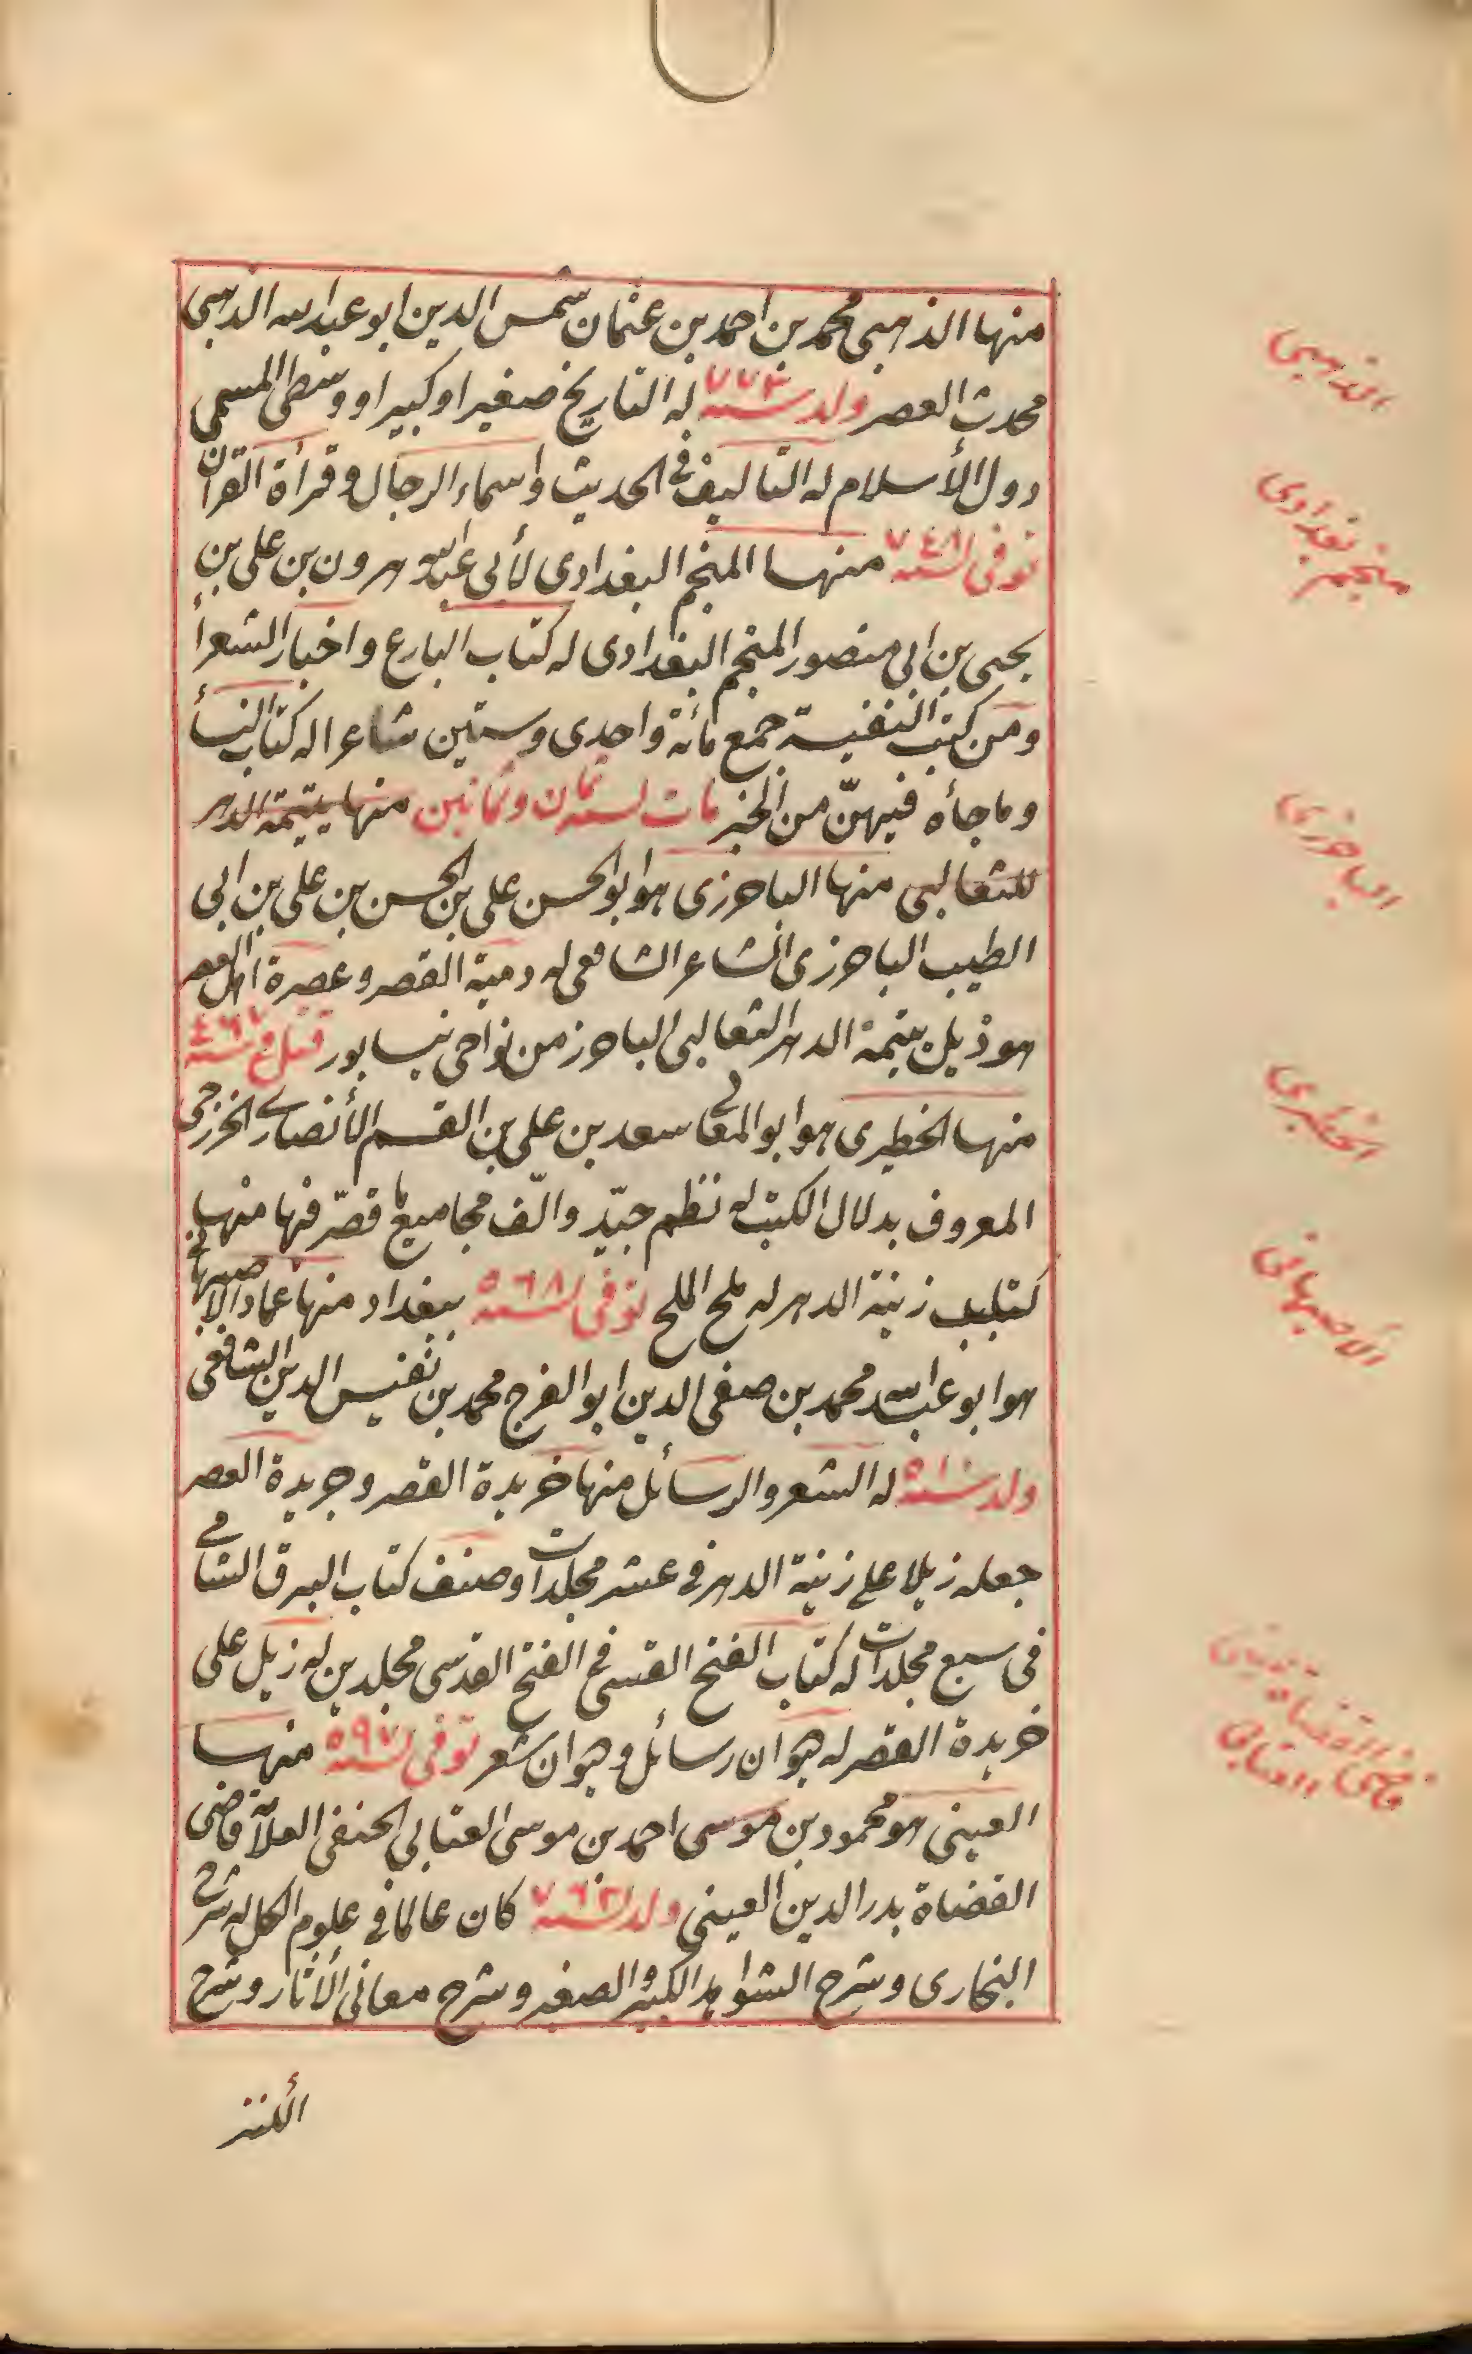 منها الذهبى محمد بن احمد بن عثمان شمس الدين ابو عبد الله الذهبى
محدث العصر ولد سنة ٧٧٣ له التاريخ صغيرا وكبيرا ووسطى المسمى
دول الأسلام له التاليف فى الحديث واسماء الرجال و قرأة القرآن
توفى لسنة ٧٤٨ منها المنجم البغدادى لأبى عبد الله هرون بن على بن
يحيى بن ابى منصور المنجم البغدادى له كتاب البارع واخبار الشعرأ
ومن كتب النفيسة جمع مائة واحدى وستين شاعرا له كتاب النسأ
وما جأه فيهنّ من الخبر مات لسنة ثمان وثمانين منها يتيمة الدهر
للثعالبى منها الباخرزى هو ابو الحسن على بن الحسن بن على بن ابى
الطيب الباخرزى الشاعر الشافعى له دمية القصر وعصرة اهل العصر
هو ذيل يتيمة الدهر الثعالبى الباخرز من نواحى نيسابور قتل فى سنة ٤٦٧
منها الخطيرى هو ابو المعالى سعد بن على بن القسم الأنصارى الخزرجى
المعروف بدلال الكتب له نظم جيّد والّف مجاميع ما قصّر فيها منها
كتاب زينة الدهر له ملح الملح توفى لسنة ٥٦٨ ببغداد منها عماد الاصبهانى
هو ابو عبد الله محمد بن صفى الدين ابو الفرج محمد بن نفيس الدين الشافعى
ولد سنة ٥١٠ له الشعر والرسائل منها خريدة القصر وجريدة العصر
جعله زيلا على زينة الدهر فى عشر مجلدات وصنف كتاب البرق الشامى
فى سبع مجلدات له كتاب الفتح القسى فى الفتح القدسى مجلدين له زيل على
خريدة القصر له ديوان رسائل وديوان شعر توفى لسنة ٥٩٧ منها
العينى هو محمود بن موسى احمد بن موسى العتابى الحنفى العلامة قاضى
القضاة بدر الدين العينى ولد لسنة ٧٦٢ كان عالما فى علوم الكل له شرح
البخارى وشرح الشواهد الكبير والصغير وشرح معانى الأثار وشرح
الكنز
الذهبى
منجم بغدادى
الباخرزى
الخطيرى
الأصبهانى
قاضى القضاة
العتابى